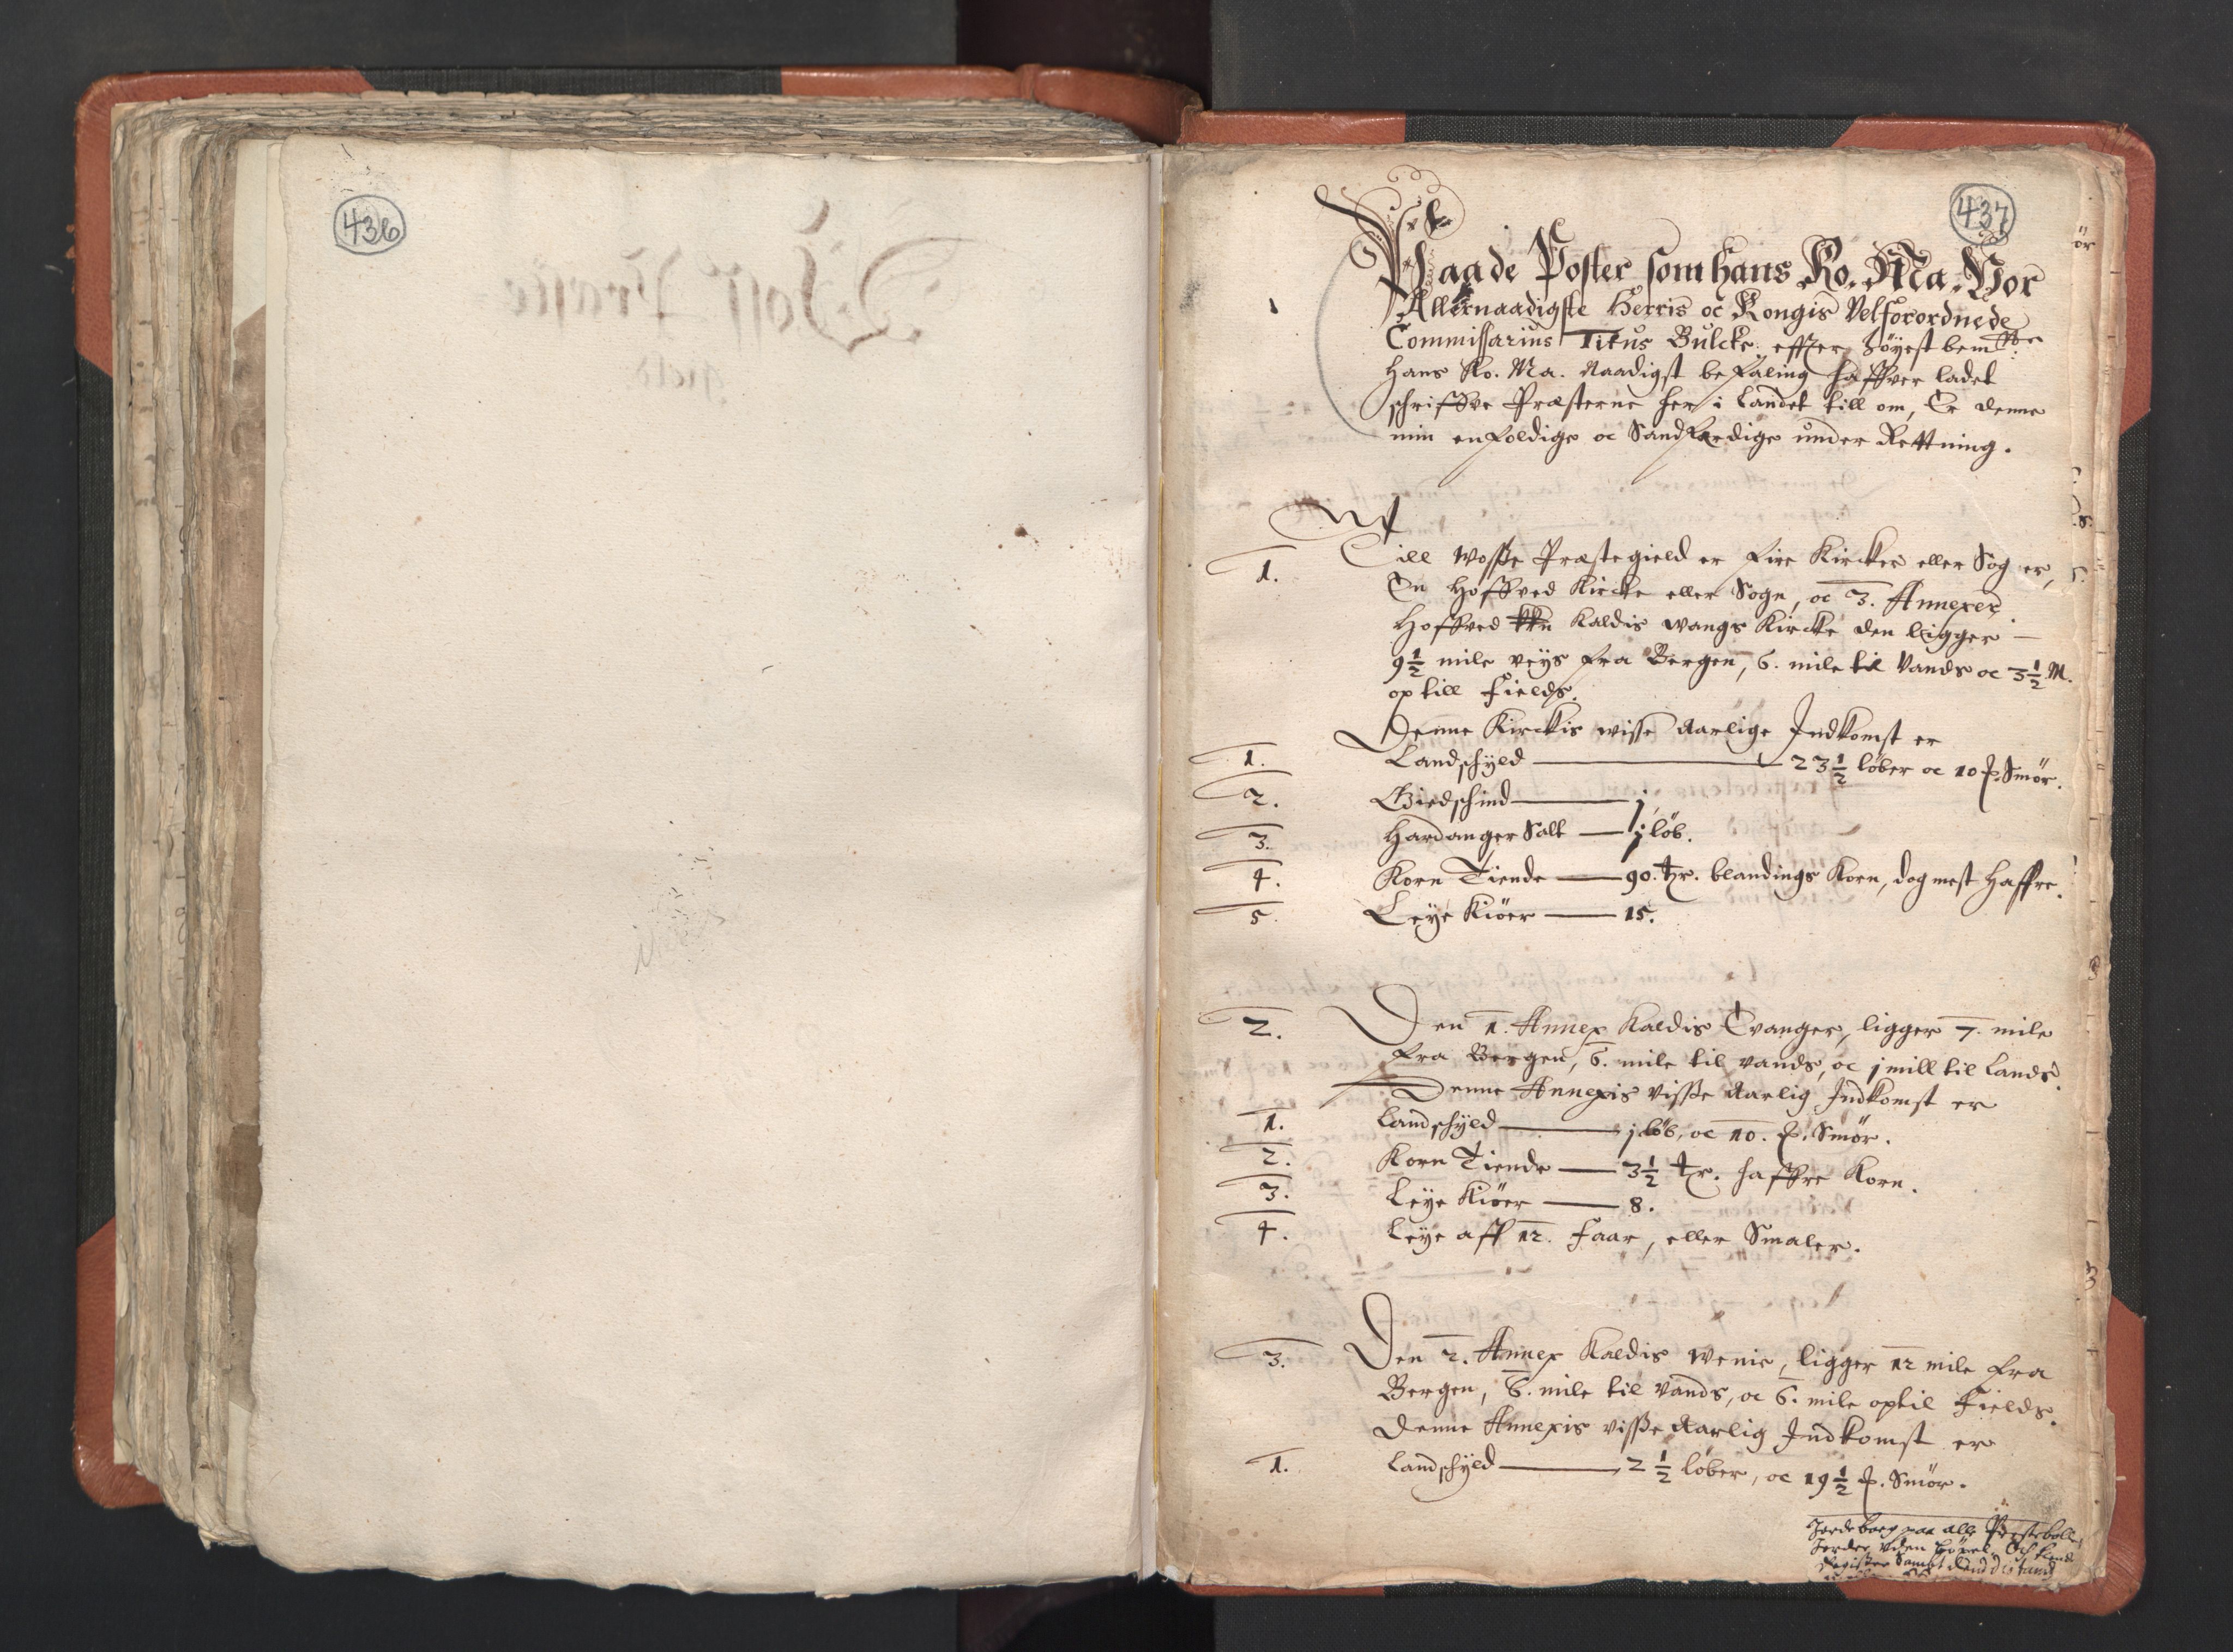 436
437
Paa de Poster som hans Ko. Ma. Vor
Allernaadigste Herris oc Kongis Velforordnede
Commissarius Titus Bulcke effter høyest bem.te
Hans Ko. Ma. Naadigst befaling haffver ladet
schriffve Præsterne her i Landet till om, Er denne
min enfoldige oc Sandfærdige under Rettning.
1. Till Wosse Præstegield er fire Kircker eller Sogner,
En Hoffved Kircke eller Sogn, oc 3. Annexer
Hoffved Kaldis Wangs Kircke den ligger
9 1/2 mile veys fra Bergen, 6. mile til Vands oc 3 1/2 M.
op till Fields.
Denne Kirckis wisse Aarlige Indkomst er
1. Landschyld 23 1/2 løber oc 10 Smør.
2. Giedschind j
3. Hardanger Salt j løb.
4. Korn Tiende 90. tr. blandings Korn, dog mest Haffre.
5. Leye Kiøer 15.
2. Den 1. Annex Kaldis Evanger, ligger 7. mile
fra Bergen, 6. mile til Vands, oc j mill til Lands.
Denne Annexis visse Aarlig Indkomst er
1. Landschyld j løb, oc 10. Smør.
2. Korn Tiende 3 1/2 tr. haffre Korn.
3. Leye Kiøer 8.
4. Leye aff 12. Faar, eller Smaler.
3. Den 2. Annex Kaldis Wenie, ligger 12 mile fra
Bergen, 6. mile til Vands, oc 6. mile optil Fields.
Denne Annexis visse Aarlig Indkomst er
1. Landschyld 2 1/2 løber, oc 19 1/2 Smør.
Jordebog paa alle Præstebolle
Jorder
Register Sampt